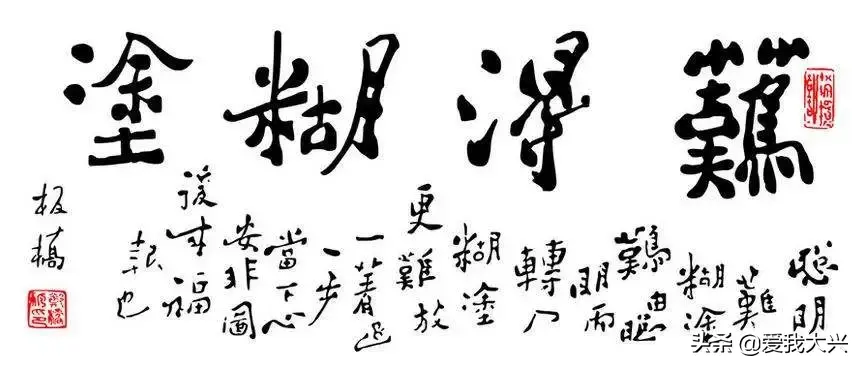 難得糊塗
聰明
難
糊塗
難由聰
明而
轉入
糊塗
更難放
一著退
一步
當下心
安非圖
後来福
報也
板橋
头条 @爱我大兴